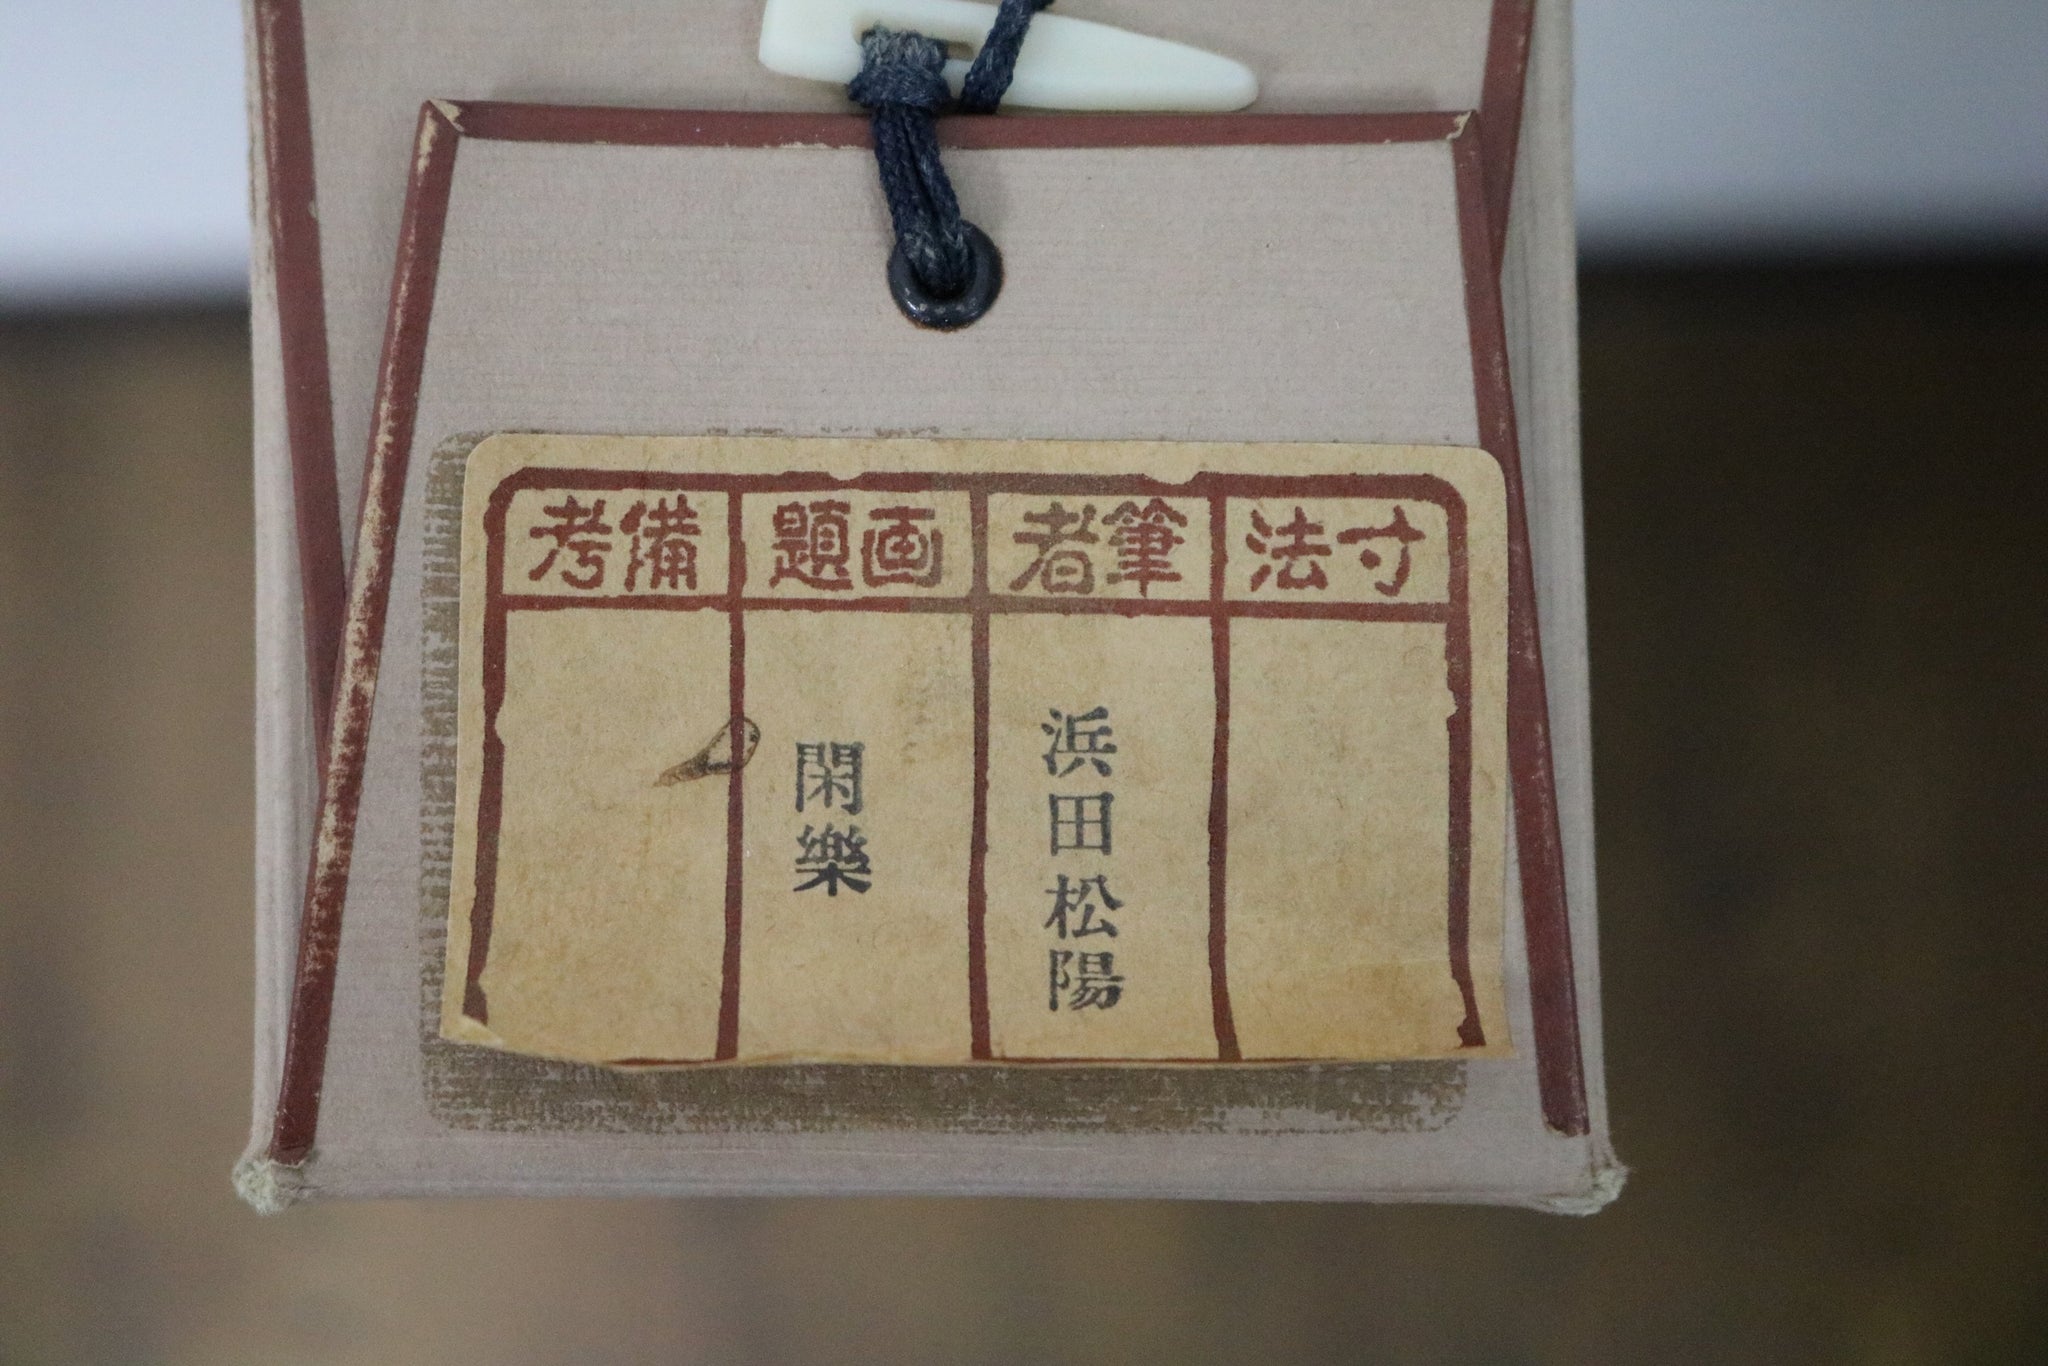 寸法
筆者
浜田松陽
画題
閑樂
備考